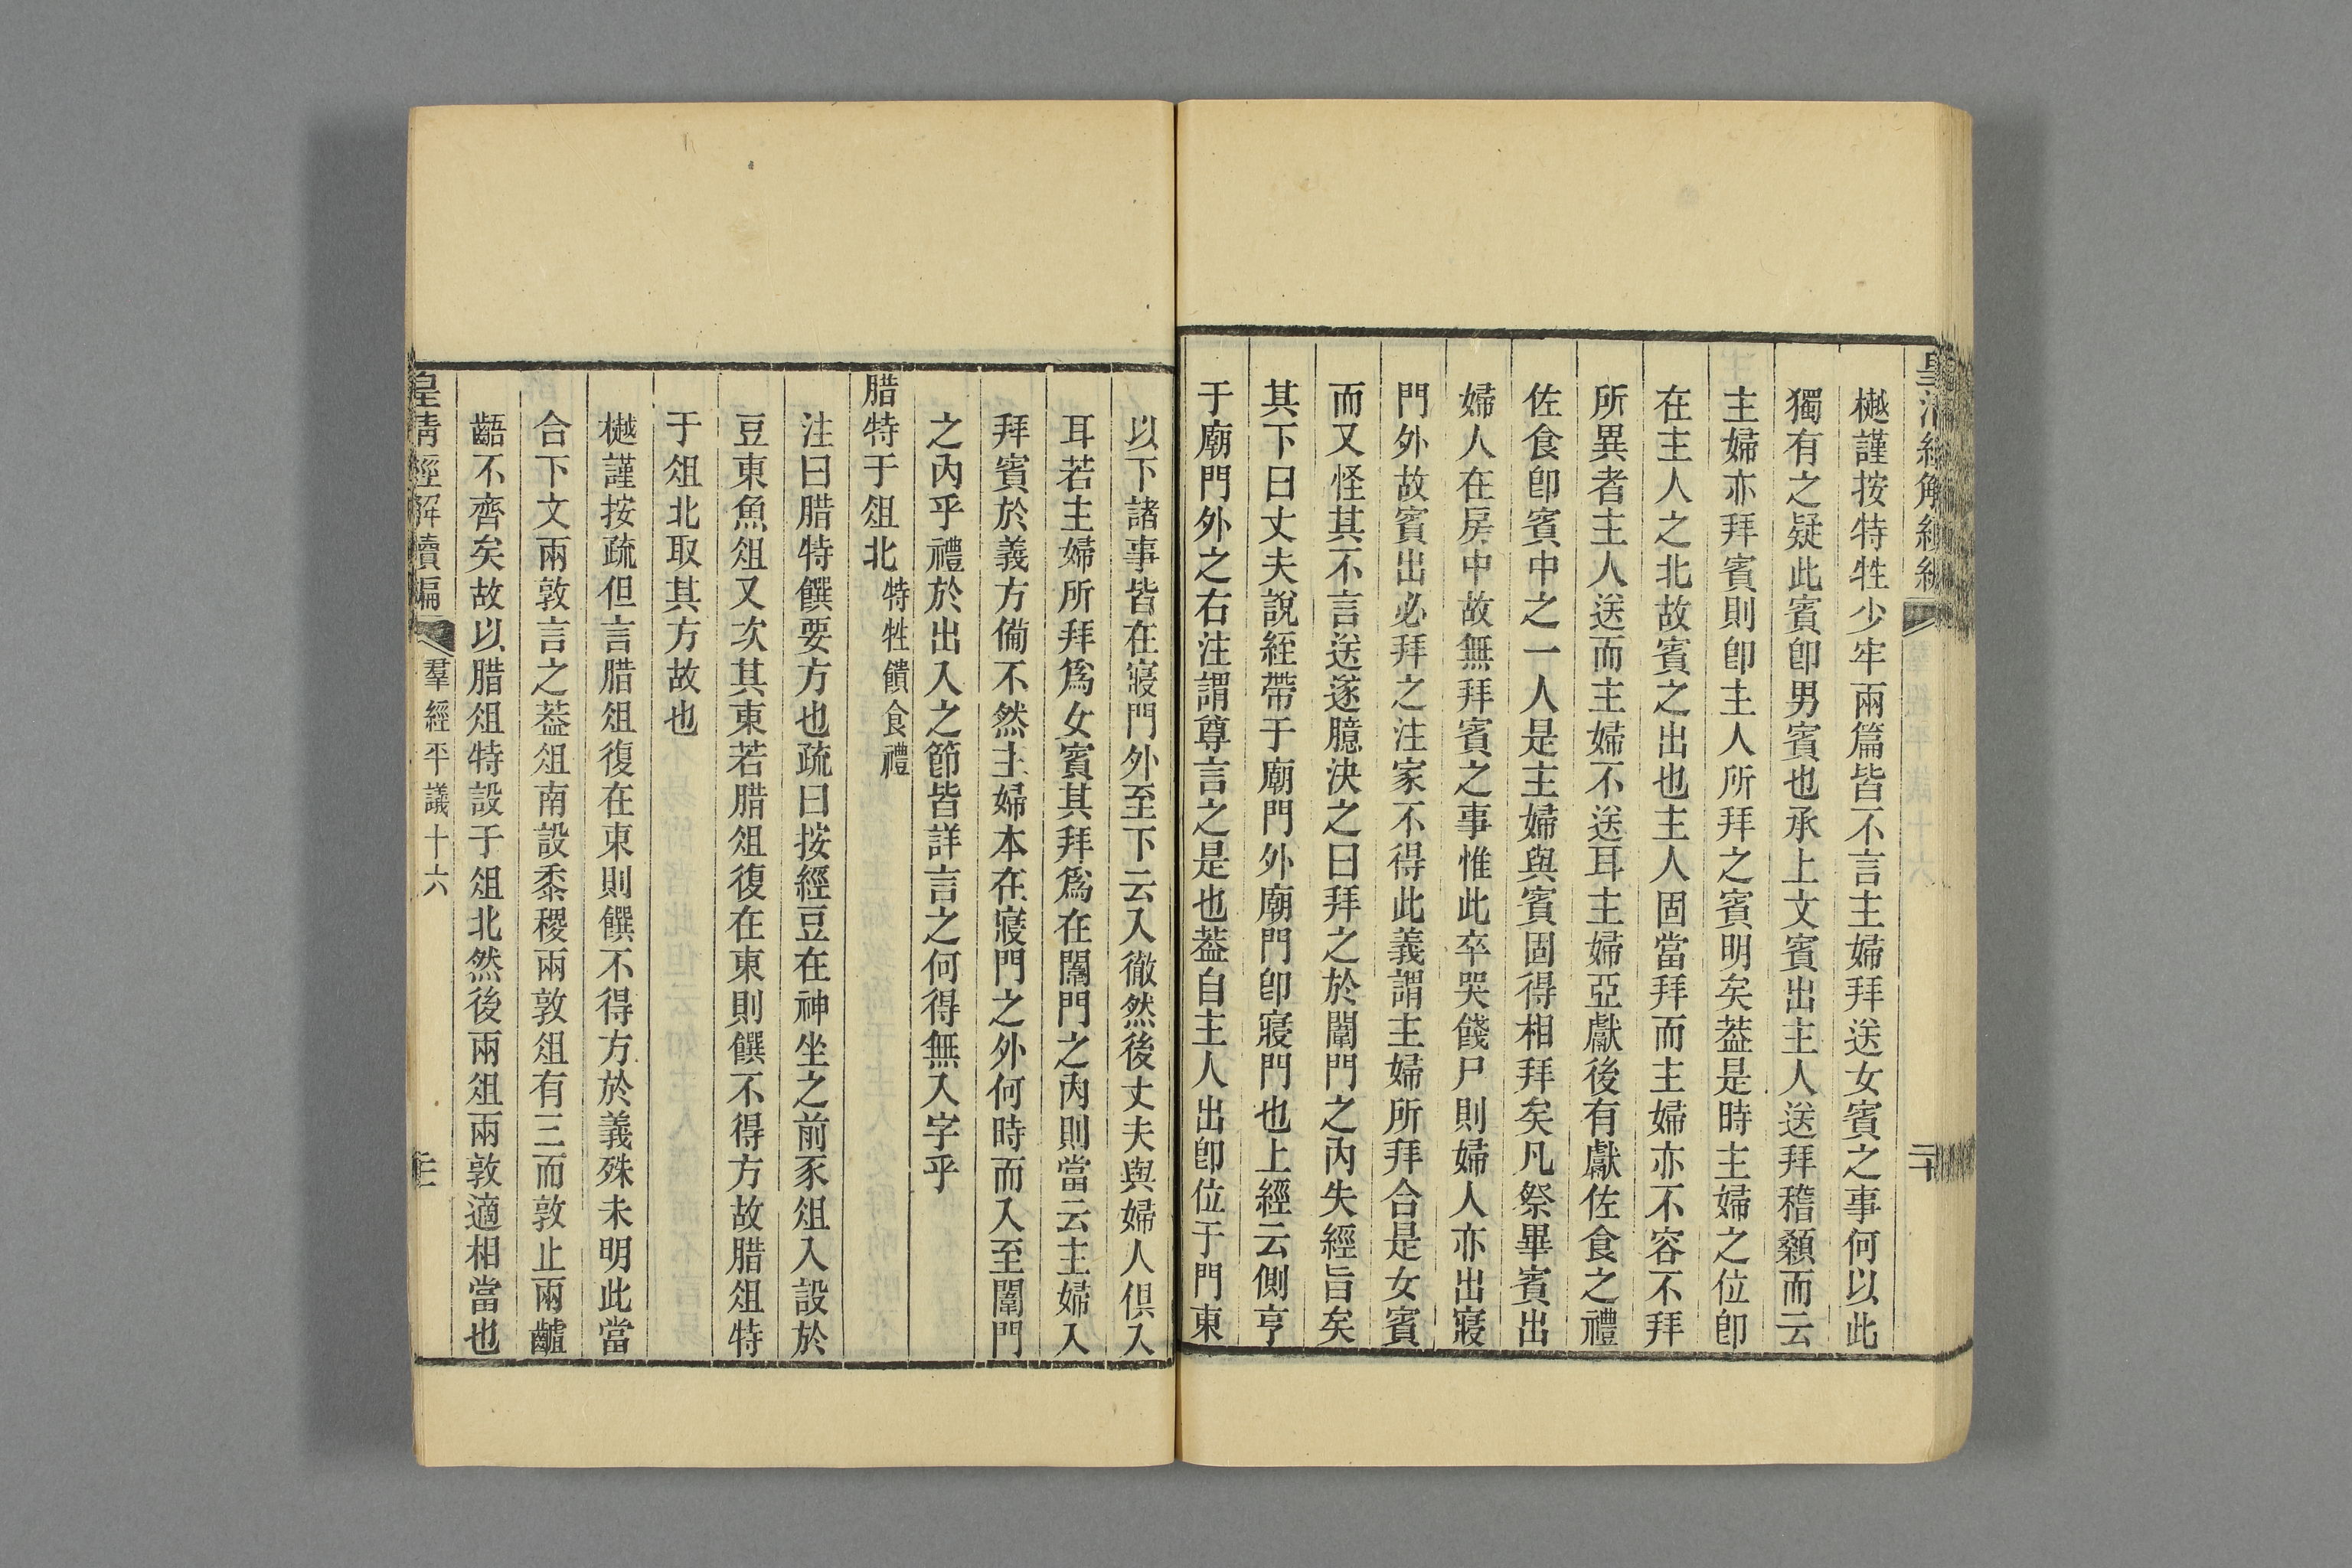 皇清經解續編
二十
樾謹按特牲少牢兩篇皆不言主婦拜送女賓之事何以此
獨有之疑此賓卽男賓也承上文賓出主人送拜稽顙而云
主婦亦拜賓則卽主人所拜之賓明矣葢是時主婦之位卽
在主人之北故賓之出也主人固當拜而主婦亦不容不拜
所異者主人送而主婦不送耳主婦亞獻後有獻佐食之禮
佐食卽賓中之一人是主婦與賓固得相拜矣凡祭畢賓出
婦人在房中故無拜賓之事惟此卒哭餞尸則婦人亦出寢
門外故賓出必拜之注家不得此義謂主婦所拜合是女賓
而又怪其不言送遂臆決之曰拜之於闈門之內失經旨矣
其下曰丈夫說絰帶于廟門外廟門卽寢門也上經云側亨
于廟門外之右注謂尊言之是也葢自主人出卽位于門東
以下諸事皆在寢門外至下云入徹然後丈夫與婦人俱入
耳若主婦所拜爲女賓其拜爲在闈門之內則當云主婦入
拜賓於義方備不然主婦本在寢門之外何時而入至闈門
之內乎禮於出入之節皆詳言之何得無入字乎
腊特于俎北特牲饋食禮
注曰腊特饌要方也疏曰按經豆在神坐之前豕俎入設於
豆東魚俎又次其東若腊俎復在東則饌不得方故腊俎特
于俎北取其方故也
樾謹按疏但言腊俎復在東則饌不得方於義殊未明此當
合下文兩敦言之葢俎南設黍稷兩敦俎有三而敦止兩齟
齬不齊矣故以腊俎特設于俎北然後兩俎兩敦適相當也
皇清經解續編
羣經平議十六